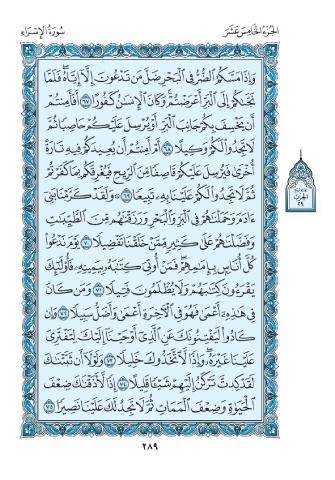 الجزء الخامس عشر
سورة الإسراء
وَإِذَا مَسَّكُمُ ٱلضُّرُّ فِي ٱلْبَحْرِ ضَلَّ مَن تَدْعُونَ إِلَّآ إِيَّاهُ ۖ فَلَمَّا
نَجَّىٰكُمْ إِلَى ٱلْبَرِّ أَعْرَضْتُمْ ۚ وَكَانَ ٱلْإِنسَٰنُ كَفُورًا ٦٧ أَفَأَمِنتُمْ
أَن يَخْسِفَ بِكُمْ جَانِبَ ٱلْبَرِّ أَوْ يُرْسِلَ عَلَيْكُمْ حَاصِبًا ثُمَّ
لَا تَجِدُوا۟ لَكُمْ وَكِيلًا ٦٨ أَمْ أَمِنتُمْ أَن يُعِيدَكُمْ فِيهِ تَارَةً
أُخْرَىٰ فَيُرْسِلَ عَلَيْكُمْ قَاصِفًا مِّنَ ٱلرِّيحِ فَيُغْرِقَكُم بِمَا كَفَرْتُمْ ۙ
ثُمَّ لَا تَجِدُوا۟ لَكُمْ عَلَيْنَا بِهِۦ تَبِيعًا ٦٩ ۞ وَلَقَدْ كَرَّمْنَا بَنِيٓ
ءَادَمَ وَحَمَلْنَٰهُمْ فِي ٱلْبَرِّ وَٱلْبَحْرِ وَرَزَقْنَٰهُم مِّنَ ٱلطَّيِّبَٰتِ
وَفَضَّلْنَٰهُمْ عَلَىٰ كَثِيرٍ مِّمَّنْ خَلَقْنَا تَفْضِيلًا ٧٠ يَوْمَ نَدْعُوا۟
كُلَّ أُنَاسٍۭ بِإِمَٰمِهِمْ ۖ فَمَنْ أُوتِيَ كِتَٰبَهُۥ بِيَمِينِهِۦ فَأُو۟لَٰٓئِكَ
يَقْرَءُونَ كِتَٰبَهُمْ وَلَا يُظْلَمُونَ فَتِيلًا ٧١ وَمَن كَانَ
فِي هَٰذِهِۦٓ أَعْمَىٰ فَهُوَ فِي ٱلْءَاخِرَةِ أَعْمَىٰ وَأَضَلُّ سَبِيلًا ٧٢ وَإِن
كَادُوا۟ لَيَفْتِنُونَكَ عَنِ ٱلَّذِيٓ أَوْحَيْنَآ إِلَيْكَ لِتَفْتَرِيَ
عَلَيْنَا غَيْرَهُۥ ۖ وَإِذًا لَّٱتَّخَذُوكَ خَلِيلًا ٧٣ وَلَوْلَآ أَن ثَبَّتْنَٰكَ
لَقَدْ كِدتَّ تَرْكَنُ إِلَيْهِمْ شَيْـًٔا قَلِيلًا ٧٤ إِذًا لَّأَذَقْنَٰكَ ضِعْفَ
ٱلْحَيَوٰةِ وَضِعْفَ ٱلْمَمَاتِ ثُمَّ لَا تَجِدُ لَكَ عَلَيْنَا نَصِيرًا ٧٥
الحزب
٢٩
٢٨٩